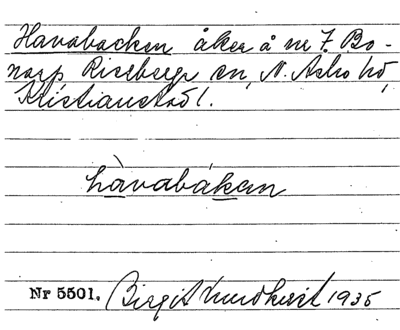 Havabacken åker å nr 7 Bo-
narp Riseberga sn, N. Åsbo hd,
Kristianstad l.
hàvabákan
Nr 5501. Birgit Lundkvist 1935